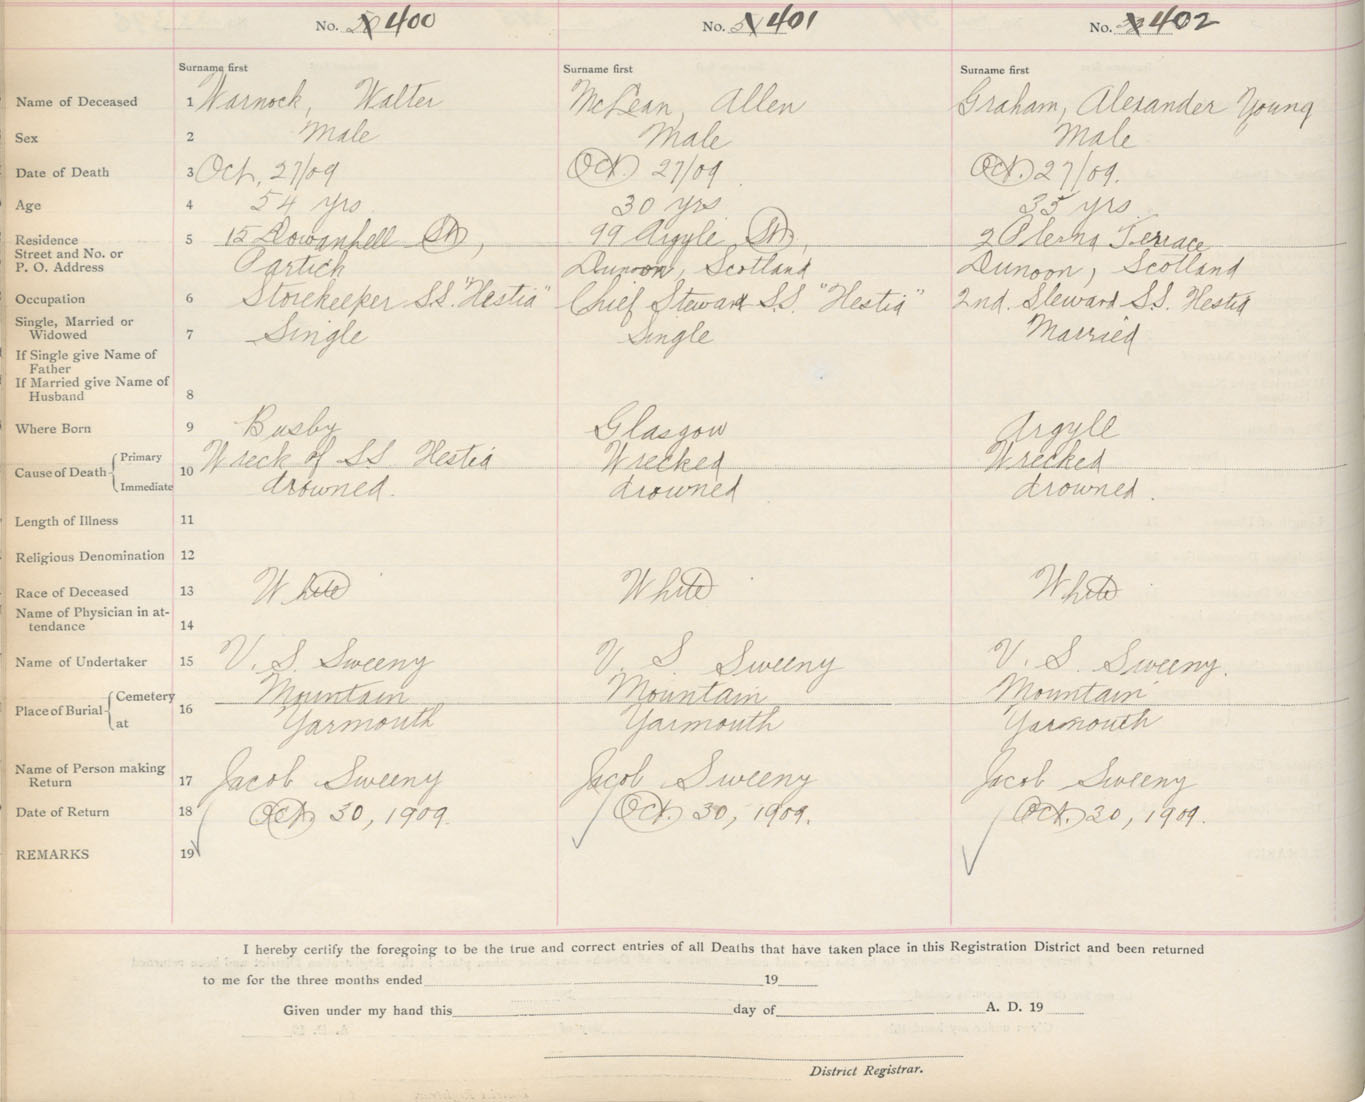 No. 400 No. 401 No. 402
Surname first Surname first Surname first
Name of Deceased 1 Warnock, Walter McLean, Allen Graham, Alexander Young
Sex 2 Male Male Male
Date of Death 3 Oct. 27/09 Oct. 27/09 Oct. 27/09.
Age 4 54 yrs 30 yrs 35 yrs
Residence 5 15 Dowanhill St, 99 Argyle St, 2 Terrace
Street and No. or
P. O. Address Partick Dunoon, Scotland Dunoon, Scotland
Occupation 6 Storekeeper S.S. "Hestia" Chief Steward S.S. "Hestia" 2nd. Steward S.S. Hestia
Single, Married or
Widowed 7 Single Single Married
If Single give Name of
Father
If Married give Name of
Husband 8
Where Born 9 Busby Glasgow Argyle
Cause of Death Primary 10 Wreck of SS Hestia Wrecked Wrecked
Immediate drowned. drowned drowned.
Length of Illness 11
Religious Denomination 12
Race of Deceased 13 White White White
Name of Physician in at-
tendance 14
Name of Undertaker 15 V. S. Sweeny V. S Sweeny V. S. Sweeny.
Place of Burial Cemetery 16 Mountain Mountain Mountain
at Yarmouth Yarmouth Yarmouth
Name of Person making
Return 17 Jacob Sweeny Jacob Sweeny Jacob Sweeny
Date of Return 18 Oct. 30, 1909. Oct. 30, 1909. Oct. 30, 1909.
REMARKS 19
I hereby certify the foregoing to be the true and correct entries of all Deaths that have taken place in this Registration District and been returned
to me for the three months ended 19
Given under my hand this day of A. D. 19
District Registrar.